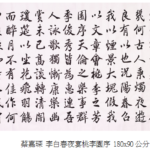 幾何古人秉燭夜遊
良有以也況陽春召
我以煙景大塊假我
以文章會桃李之芳
園序天倫之樂事群
季俊秀皆為惠連吾
人詠歌獨慚康樂幽
賞未已高談轉清開
瓊筵以坐花飛羽觴
而醉月不有佳作何
蔡嘉琛 李白春夜宴桃李園序 180x90公分